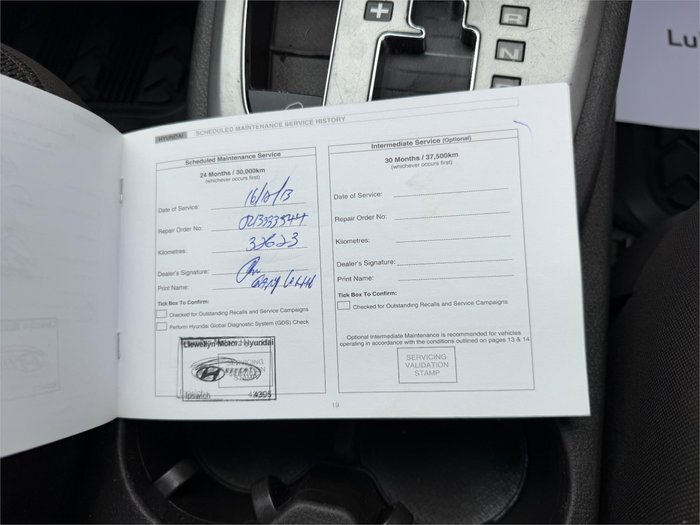 +
R
N
Lu
HYUNDAI SCHEDULED MAINTENANCE SERVICE HISTORY
Scheduled Maintenance Service
24 Months / 30,000km
(whichever occurs first)
Date of Service: 16/12/13
Repair Order No:
Kilometres: 32623
Dealer's Signature:
Print Name:
Tick Box To Confirm:
Checked for Outstanding Recalls and Service Campaigns
Perform Hyundai Global Diagnostic System (GDS) Check
Llewellyn Motors Hyundai
SERVICING
VALIDATION
STAMP
Ipswich 4305
Intermediate Service (Optional)
30 Months / 37,500km
(whichever occurs first)
Date of Service:
Repair Order No:
Kilometres:
Dealer's Signature:
Print Name:
Tick Box To Confirm:
Checked for Outstanding Recalls and Service Campaigns
Optional Intermediate Maintenance is recommended for vehicles
operating in accordance with the conditions outlined on pages 13 & 14
SERVICING
VALIDATION
STAMP
19